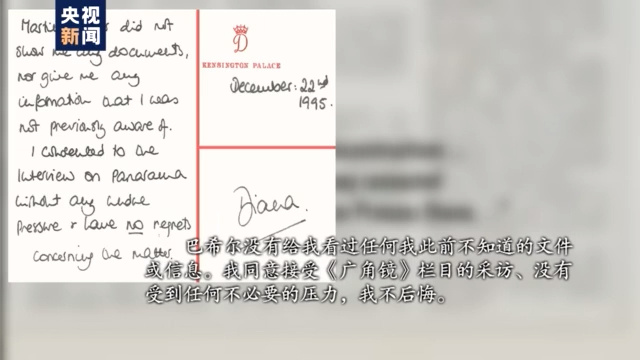 央视
新闻
Martin did not
show me any documents,
nor give me any
information that I was
not previously aware of.
I consented to the
interview on Panorama
without any undue
pressure & have NO regrets
concerning the matter.
D
KENSINGTON PALACE
December: 22nd
1995.
Diana.
巴希尔没有给我看过任何我此前不知道的文件
或信息。我同意接受《广角镜》栏目的采访、没有
受到任何不必要的压力，我不后悔。